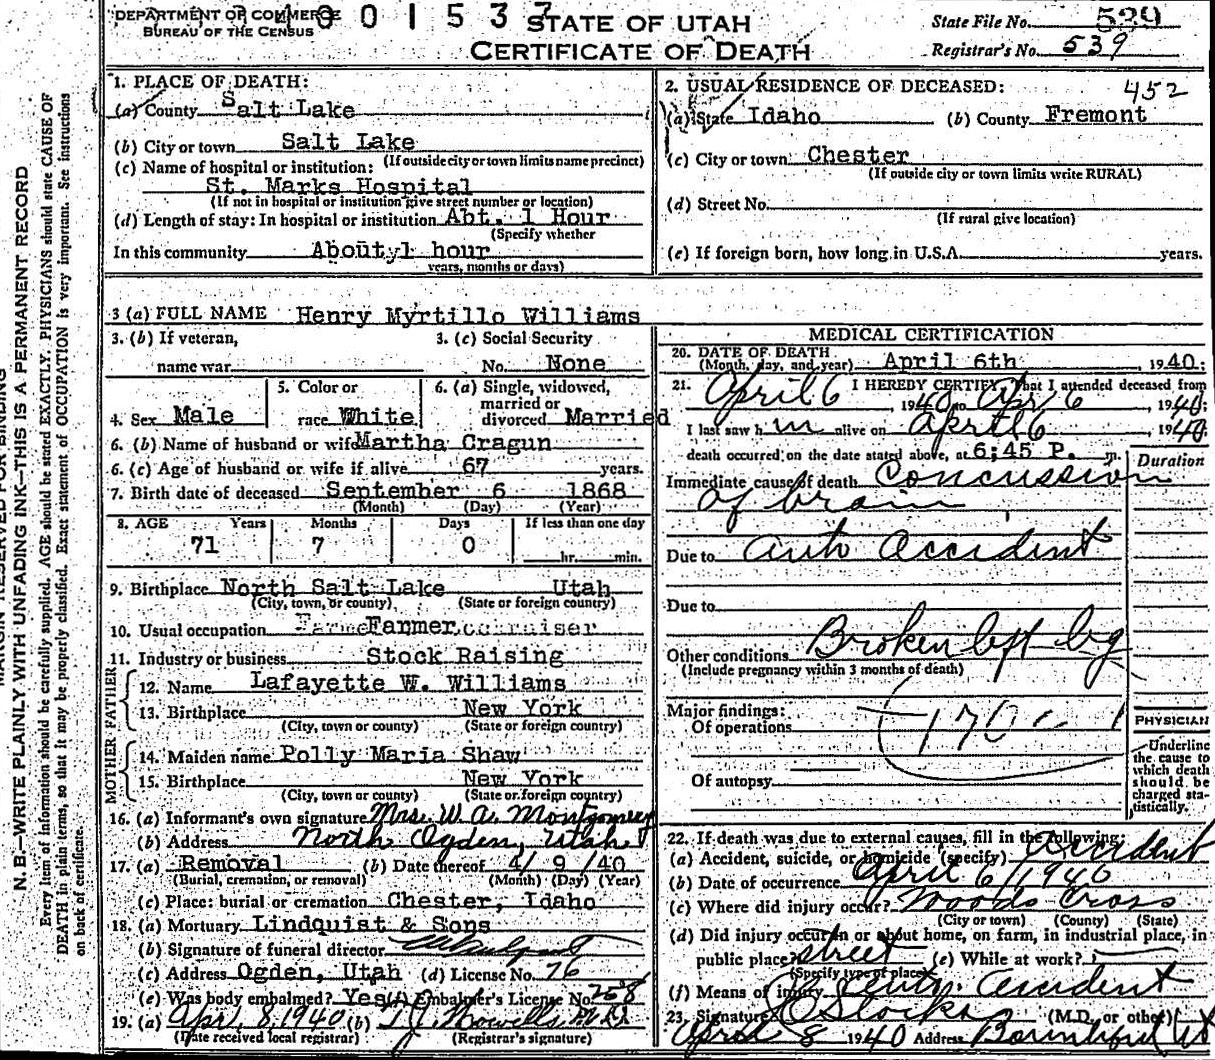 DEPARTMENT OF COMMERCE
BUREAU OF THE CENSUS
0 0 1 5 3 7
STATE OF UTAH
CERTIFICATE OF DEATH
State File No. 539
Registrar's No. 539
1. PLACE OF DEATH:
(a) County Salt Lake
(b) City or town Salt Lake
(If outside city or town limits name precinct)
(c) Name of hospital or institution:
St. Marks Hospital
(If not in hospital or institution give street number or location)
(d) Length of stay: In hospital or institution Abt. 1 Hour
(Specify whether
In this community About 1 hour
years, months or days)
2. USUAL RESIDENCE OF DECEASED: 452
(a) State Idaho (b) County Fremont
(c) City or town Chester
(If outside city or town limits write RURAL)
(d) Street No.
(If rural give location)
(e) If foreign born, how long in U.S.A. years.
3 (a) FULL NAME Henry Myrtillo Williams
3. (b) If veteran,
name war
3. (c) Social Security
No. None
4. Sex Male
5. Color or
race White
6. (a) Single, widowed,
married or
divorced Married
6. (b) Name of husband or wife Martha Cragun
6. (c) Age of husband or wife if alive 67 years.
7. Birth date of deceased September 6 1868
(Month) (Day) (Year)
8. AGE Years Months Days If less than one day
71 7 0 hr. min.
9. Birthplace North Salt Lake Utah
(City, town, or county) (State or foreign country)
10. Usual occupation Farmer
11. Industry or business Stock Raising
FATHER
12. Name Lafayette W. Williams
13. Birthplace New York
(City, town or county) (State or foreign country)
MOTHER
14. Maiden name Polly Maria Shaw
15. Birthplace New York
(City, town or county) (State or foreign country)
16. (a) Informant's own signature Mrs. W. A. Montgomery
(b) Address North Ogden, Utah
17. (a) Removal (b) Date thereof 4/ 9 /40
(Burial, cremation, or removal) (Month) (Day) (Year)
(c) Place: burial or cremation Chester, Idaho
18. (a) Mortuary Lindquist & Sons
(b) Signature of funeral director
(c) Address Ogden, Utah (d) License No. 76
(e) Was body embalmed? Yes (f) Embalmer's License No. 758
19. (a) Apr. 8, 1940 (b) T J Howells M.D.
(Date received local registrar) (Registrar's signature)
MEDICAL CERTIFICATION
20. DATE OF DEATH
(Month, day, and year) April 6th, 1940
21. I HEREBY CERTIFY, That I attended deceased from
April 6, 1940 to Apr 6, 1940
I last saw him alive on April 6, 1940
death occurred on the date stated above, at 6:45 P. m.
Duration
Immediate cause of death Concussion
of brain
Due to Auto Accident
Due to
Other conditions Broken left leg
(Include pregnancy within 3 months of death)
Major findings:
Of operations
Of autopsy
PHYSICIAN
Underline
the cause to
which death
should be
charged sta-
tistically.
22. If death was due to external causes, fill in the following:
(a) Accident, suicide, or homicide (specify) Accident
(b) Date of occurrence April 6, 1940
(c) Where did injury occur? Woods Cross
(City or town) (County) (State)
(d) Did injury occur in or about home, on farm, in industrial place, in
public place? street (e) While at work?
(Specify type of place)
(f) Means of injury Auto. Accident
23. Signature Stocks (M.D. or other)
April 8 1940 Address Bountiful Ut
MARGIN RESERVED FOR BINDING
N. B.—WRITE PLAINLY WITH UNFADING INK—THIS IS A PERMANENT RECORD
Every item of information should be carefully supplied. AGE should be stated EXACTLY. PHYSICIANS should state CAUSE OF
DEATH in plain terms, so that it may be properly classified. Exact statement of OCCUPATION is very important. See instructions
on back of certificate.